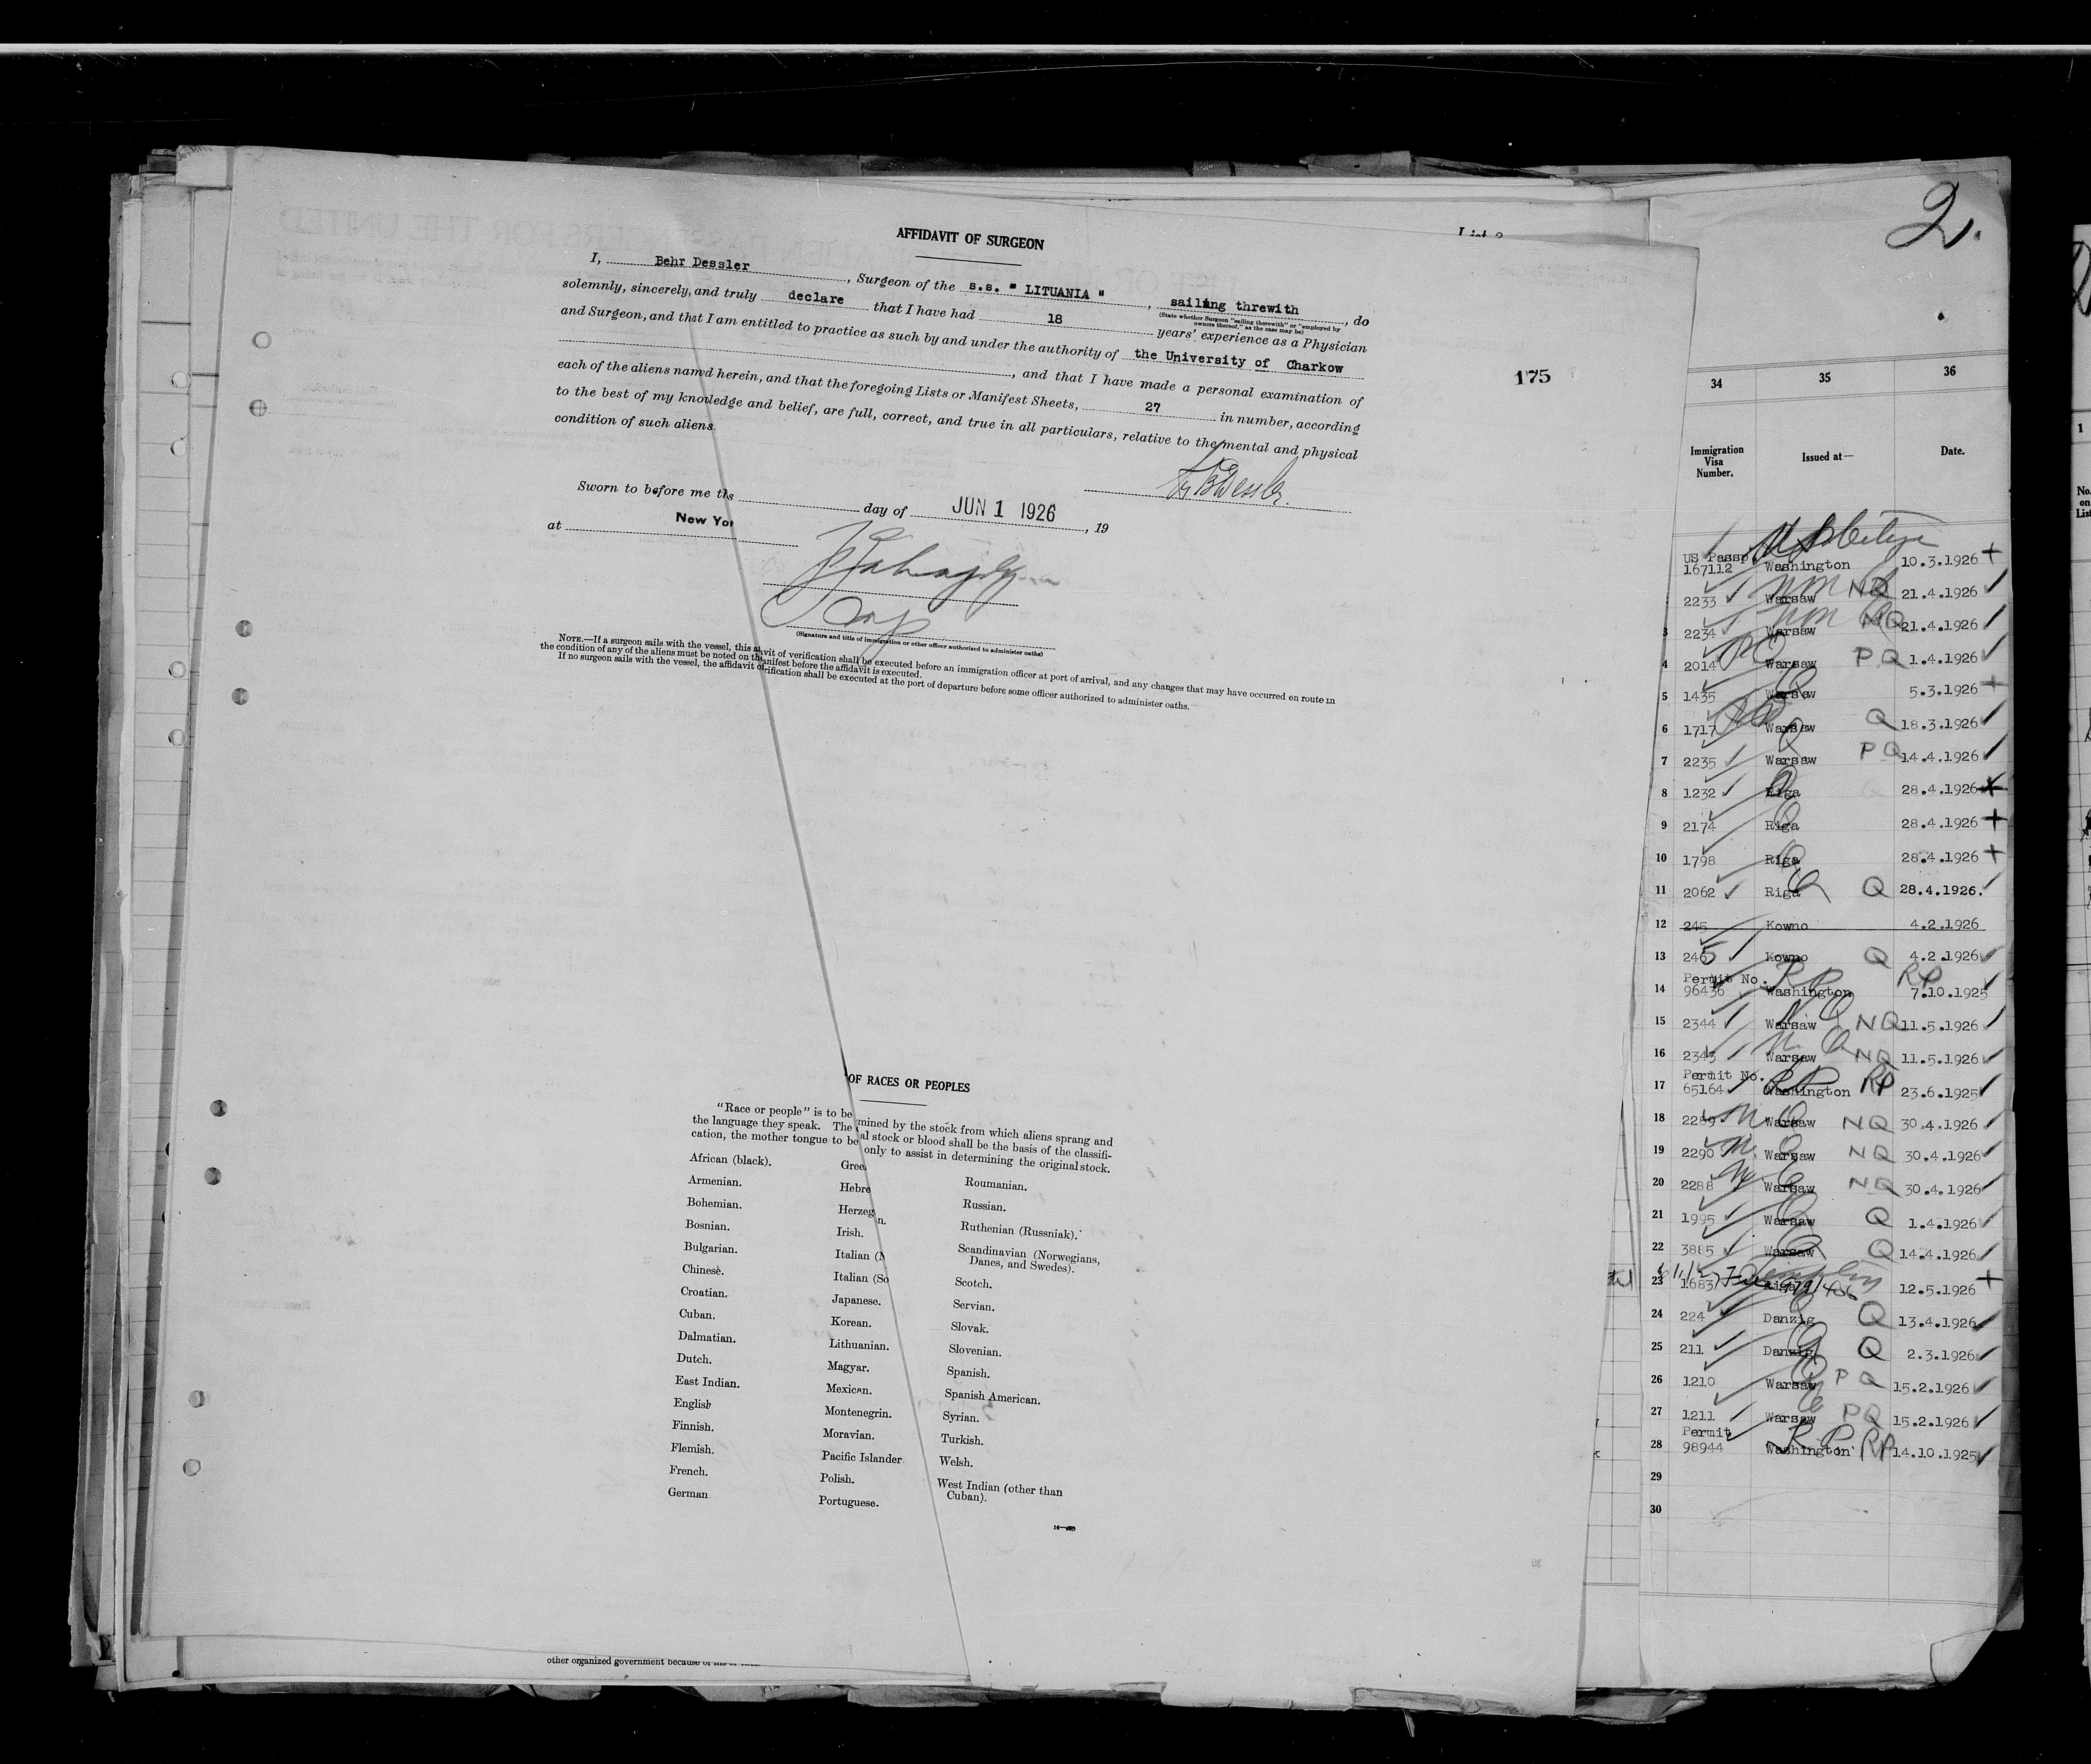 2.
AFFIDAVIT OF SURGEON
I, Behr Dessler, Surgeon of the s.s. " LITUANIA ", sailing threwith, do
(State whether Surgeon "sailing therewith" or "employed by owners thereof," as the case may be)
solemnly, sincerely, and truly declare that I have had 18 years' experience as a Physician
and Surgeon, and that I am entitled to practice as such by and under the authority of the University of Charkow
, and that I have made a personal examination of
each of the aliens named herein, and that the foregoing Lists or Manifest Sheets, 27 in number, according
to the best of my knowledge and belief, are full, correct, and true in all particulars, relative to the mental and physical
condition of such aliens.
175
Sworn to before me ths day of JUN 1 1926, 19
at New Yor
(Signature and title of immigration or other officer authorized to administer oaths)
NOTE.—If a surgeon sails with the vessel, this avit of verification shall be executed before an immigration officer at port of arrival, and any changes that may have occurred en route in
the condition of any of the aliens must be noted on the anifest before the affidavit is executed.
If no surgeon sails with the vessel, the affidavit of rification shall be executed at the port of departure before some officer authorized to administer oaths.
OF RACES OR PEOPLES
"Race or people" is to be mined by the stock from which aliens sprang and
the language they speak. The al stock or blood shall be the basis of the classifi-
cation, the mother tongue to be only to assist in determining the original stock.
African (black).
Armenian.
Bohemian.
Bosnian.
Bulgarian.
Chinese.
Croatian.
Cuban.
Dalmatian.
Dutch.
East Indian.
English
Finnish.
Flemish.
French.
German
Gree
Hebre
Herzeg n.
Irish.
Italian (N
Italian (So
Japanese.
Korean.
Lithuanian.
Magyar.
Mexican.
Montenegrin.
Moravian.
Pacific Islander
Polish.
Portuguese.
Roumanian.
Russian.
Ruthenian (Russniak).
Scandinavian (Norwegians,
Danes, and Swedes).
Scotch.
Servian.
Slovak.
Slovenian.
Spanish.
Spanish American.
Syrian.
Turkish.
Welsh.
West Indian (other than
Cuban).
other organized government because of
34 35 36
Immigration Visa Number. Issued at— Date.
US Passp.
167112 Washington 10.3.1926
2233 Warsaw NQ 21.4.1926
3 2234 Warsaw NQ 21.4.1926
4 2014 Warsaw PQ 1.4.1926
5 1435 Warsaw 5.3.1926
6 1717 Warsaw Q 18.3.1926
7 2235 Warsaw PQ 14.4.1926
8 1232 Riga 28.4.1926
9 2174 Riga 28.4.1926
10 1798 Riga 28.4.1926
11 2062 Riga Q 28.4.1926.
12 245 Kowno 4.2.1926
13 245 Kowno Q 4.2.1926
Permit No. RP RP
14 96436 Washington 7.10.1925
15 2344 Warsaw NQ 11.5.1926
16 2343 Warsaw NQ 11.5.1926
Permit No.
17 65164 Washington RP 23.6.1925
18 2289 Warsaw NQ 30.4.1926
19 2290 Warsaw NQ 30.4.1926
20 2288 Warsaw NQ 30.4.1926
21 1995 Warsaw Q 1.4.1926
22 3885 Warsaw Q 14.4.1926
23 1683 Riga 12.5.1926
24 224 Danzig Q 13.4.1926
25 211 Danzig Q 2.3.1926
26 1210 Warsaw PQ 15.2.1926
27 1211 Warsaw PQ 15.2.1926
Permit
28 98944 Washington RP 14.10.1925
29
30
1
No. on List